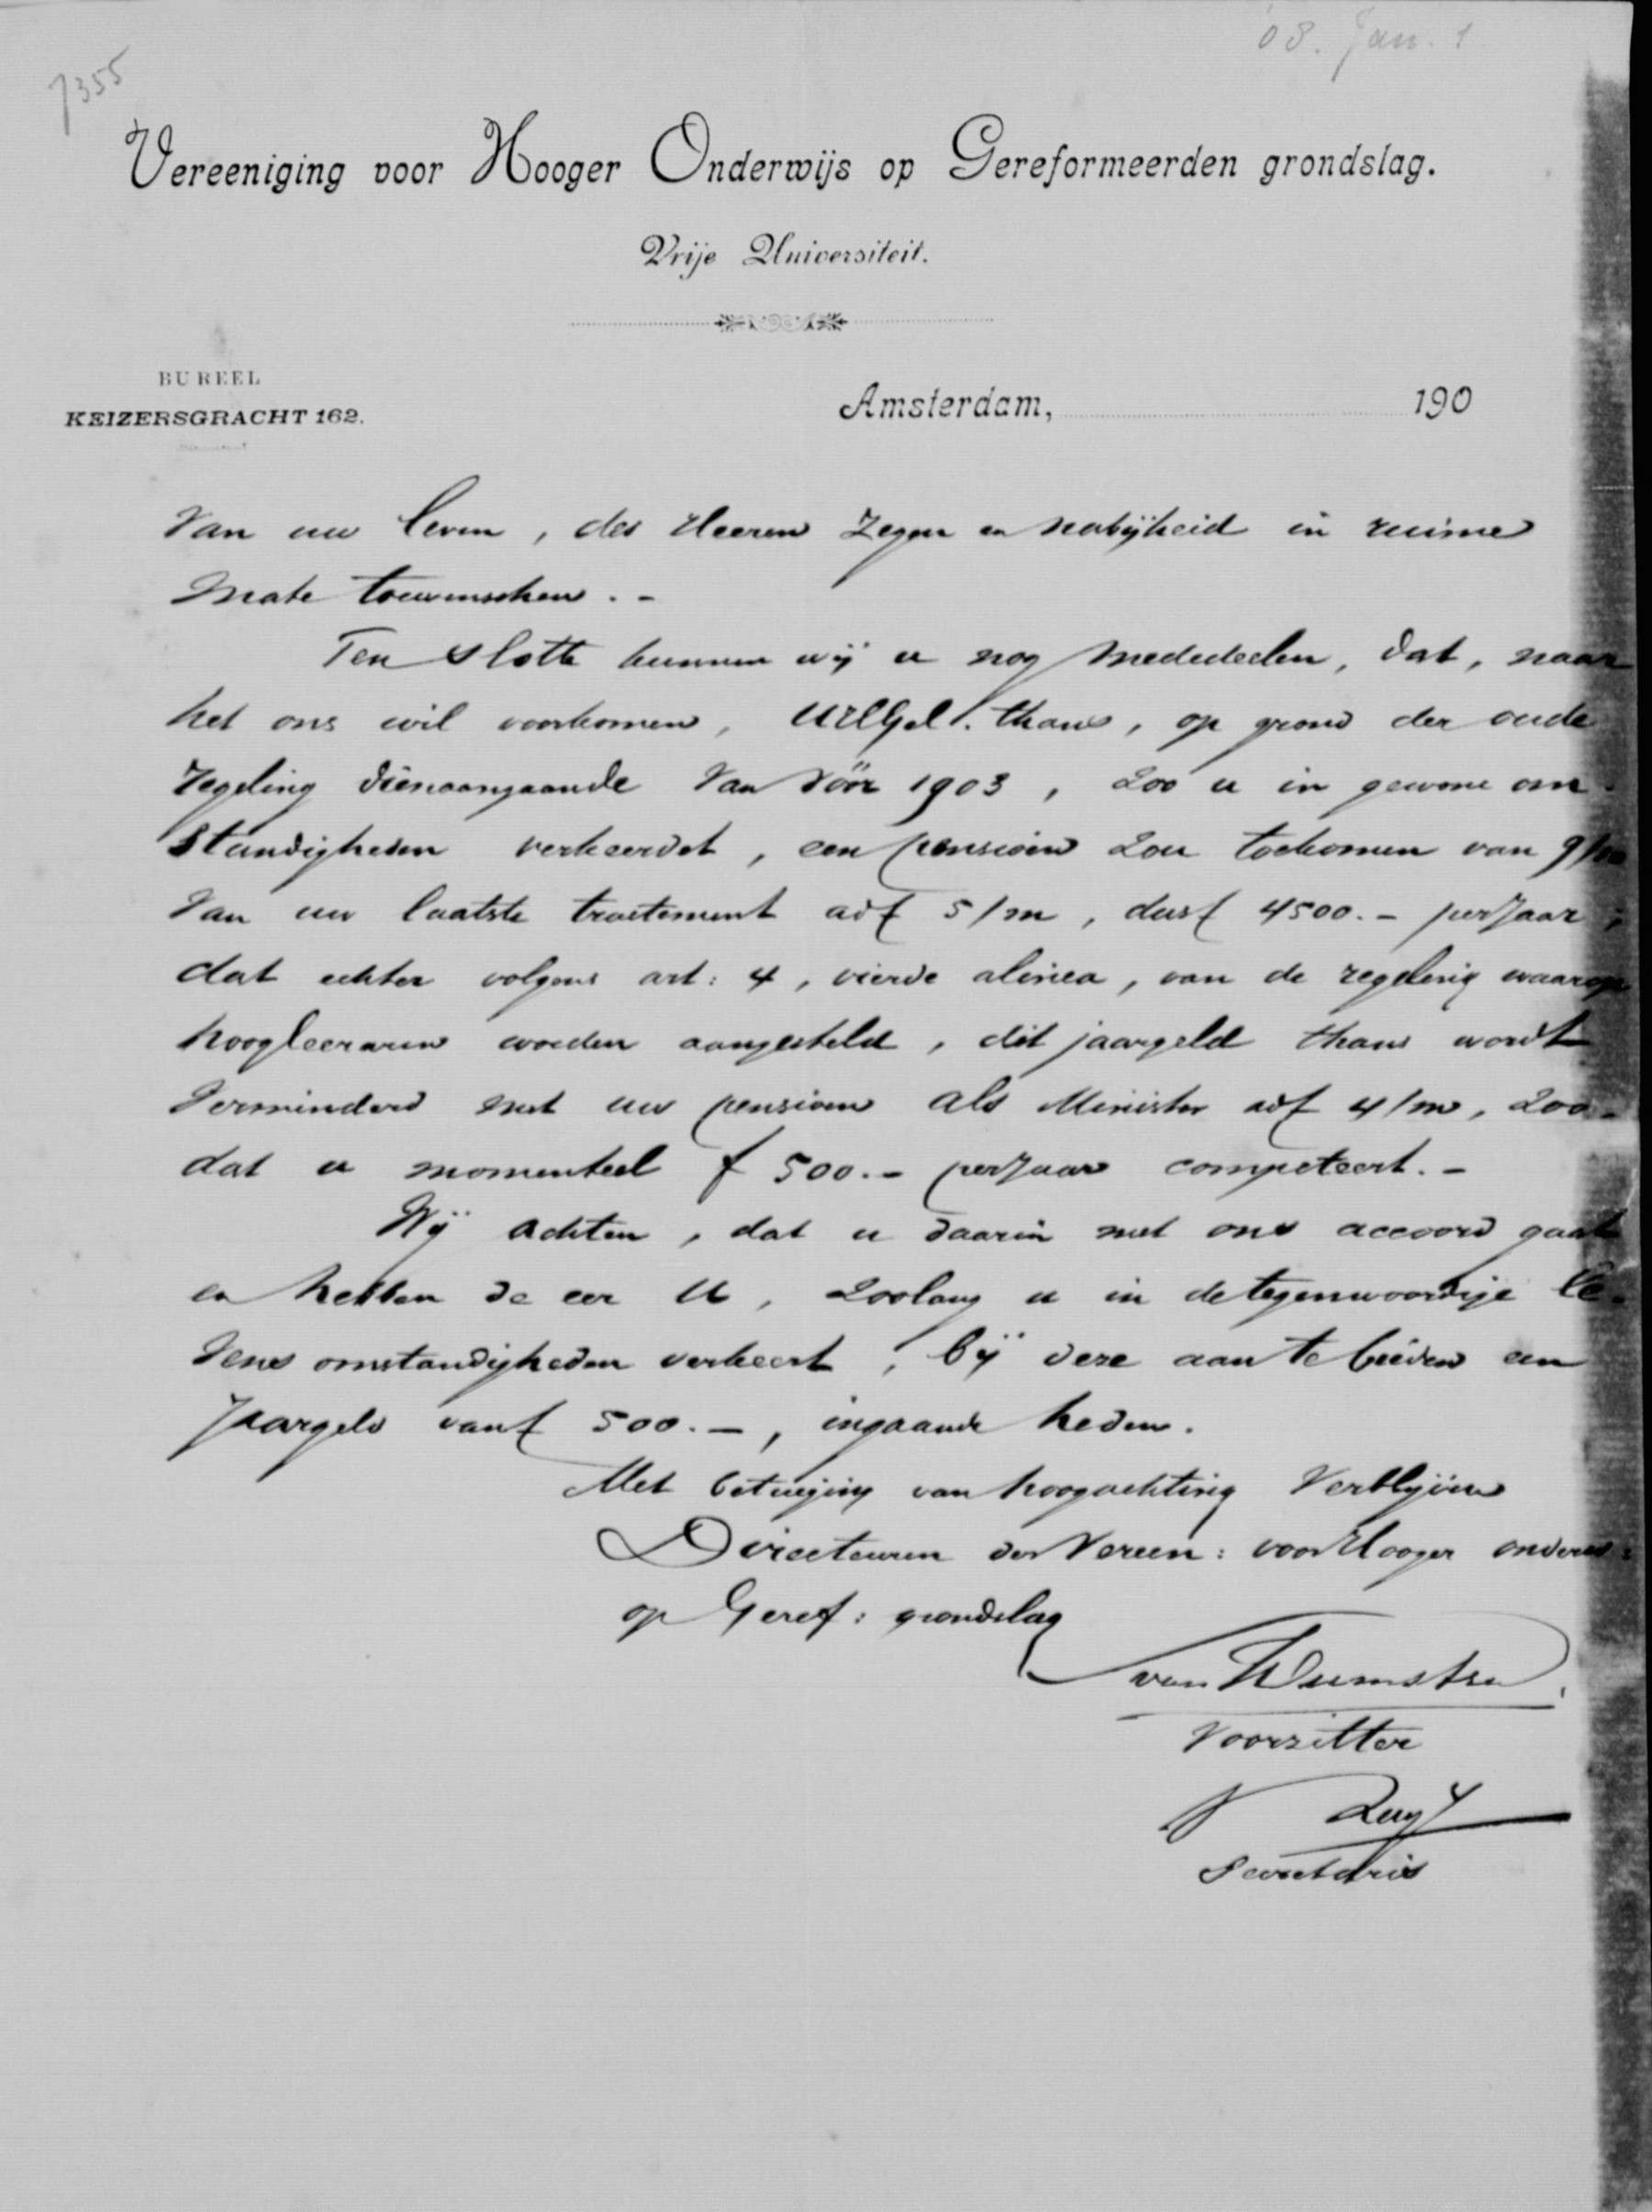 '08. Jan. 1
7355
Vereeniging voor Hooger Onderwijs op Gereformeerden grondslag.
Vrije Universiteit.
BUREEL
KEIZERSGRACHT 162.
Amsterdam, 190
van uw leven, des Heeren Zegen en nabijheid in ruime
mate toewenschen. -
Ten slotte kunnen wij u nog mededeelen, dat, naar
het ons wil voorkomen, UHGel. thans, op grond der oude
regeling dienaangaande van vóór 1903, zoo u in gewone om-
standigheden verkeerdet, een pensioen zou toekomen van 9/10
van uw laatste tractement ad f 5/m, dus f 4500.- per jaar;
dat echter volgens art: 4, vierde alinea, van de regeling waarop
hoogleeraren worden aangesteld, dit jaargeld thans wordt
verminderd met uw pensioen als Minister ad f 4/m, zoo-
dat u momenteel f 500.- per jaar competeert. -
Wij achten, dat u daarin met ons accoord gaat
en hebben de eer U, zoolang u in de tegenwoordige le-
vens omstandigheden verkeert, bij deze aan te bieden een
jaargeld van f 500.-, ingaande heden.
Met betuiging van hoogachting verblijven
Directeuren der Vereen: voor Hooger onderw:
op Geref: grondslag
van
Voorzitter
Secretaris